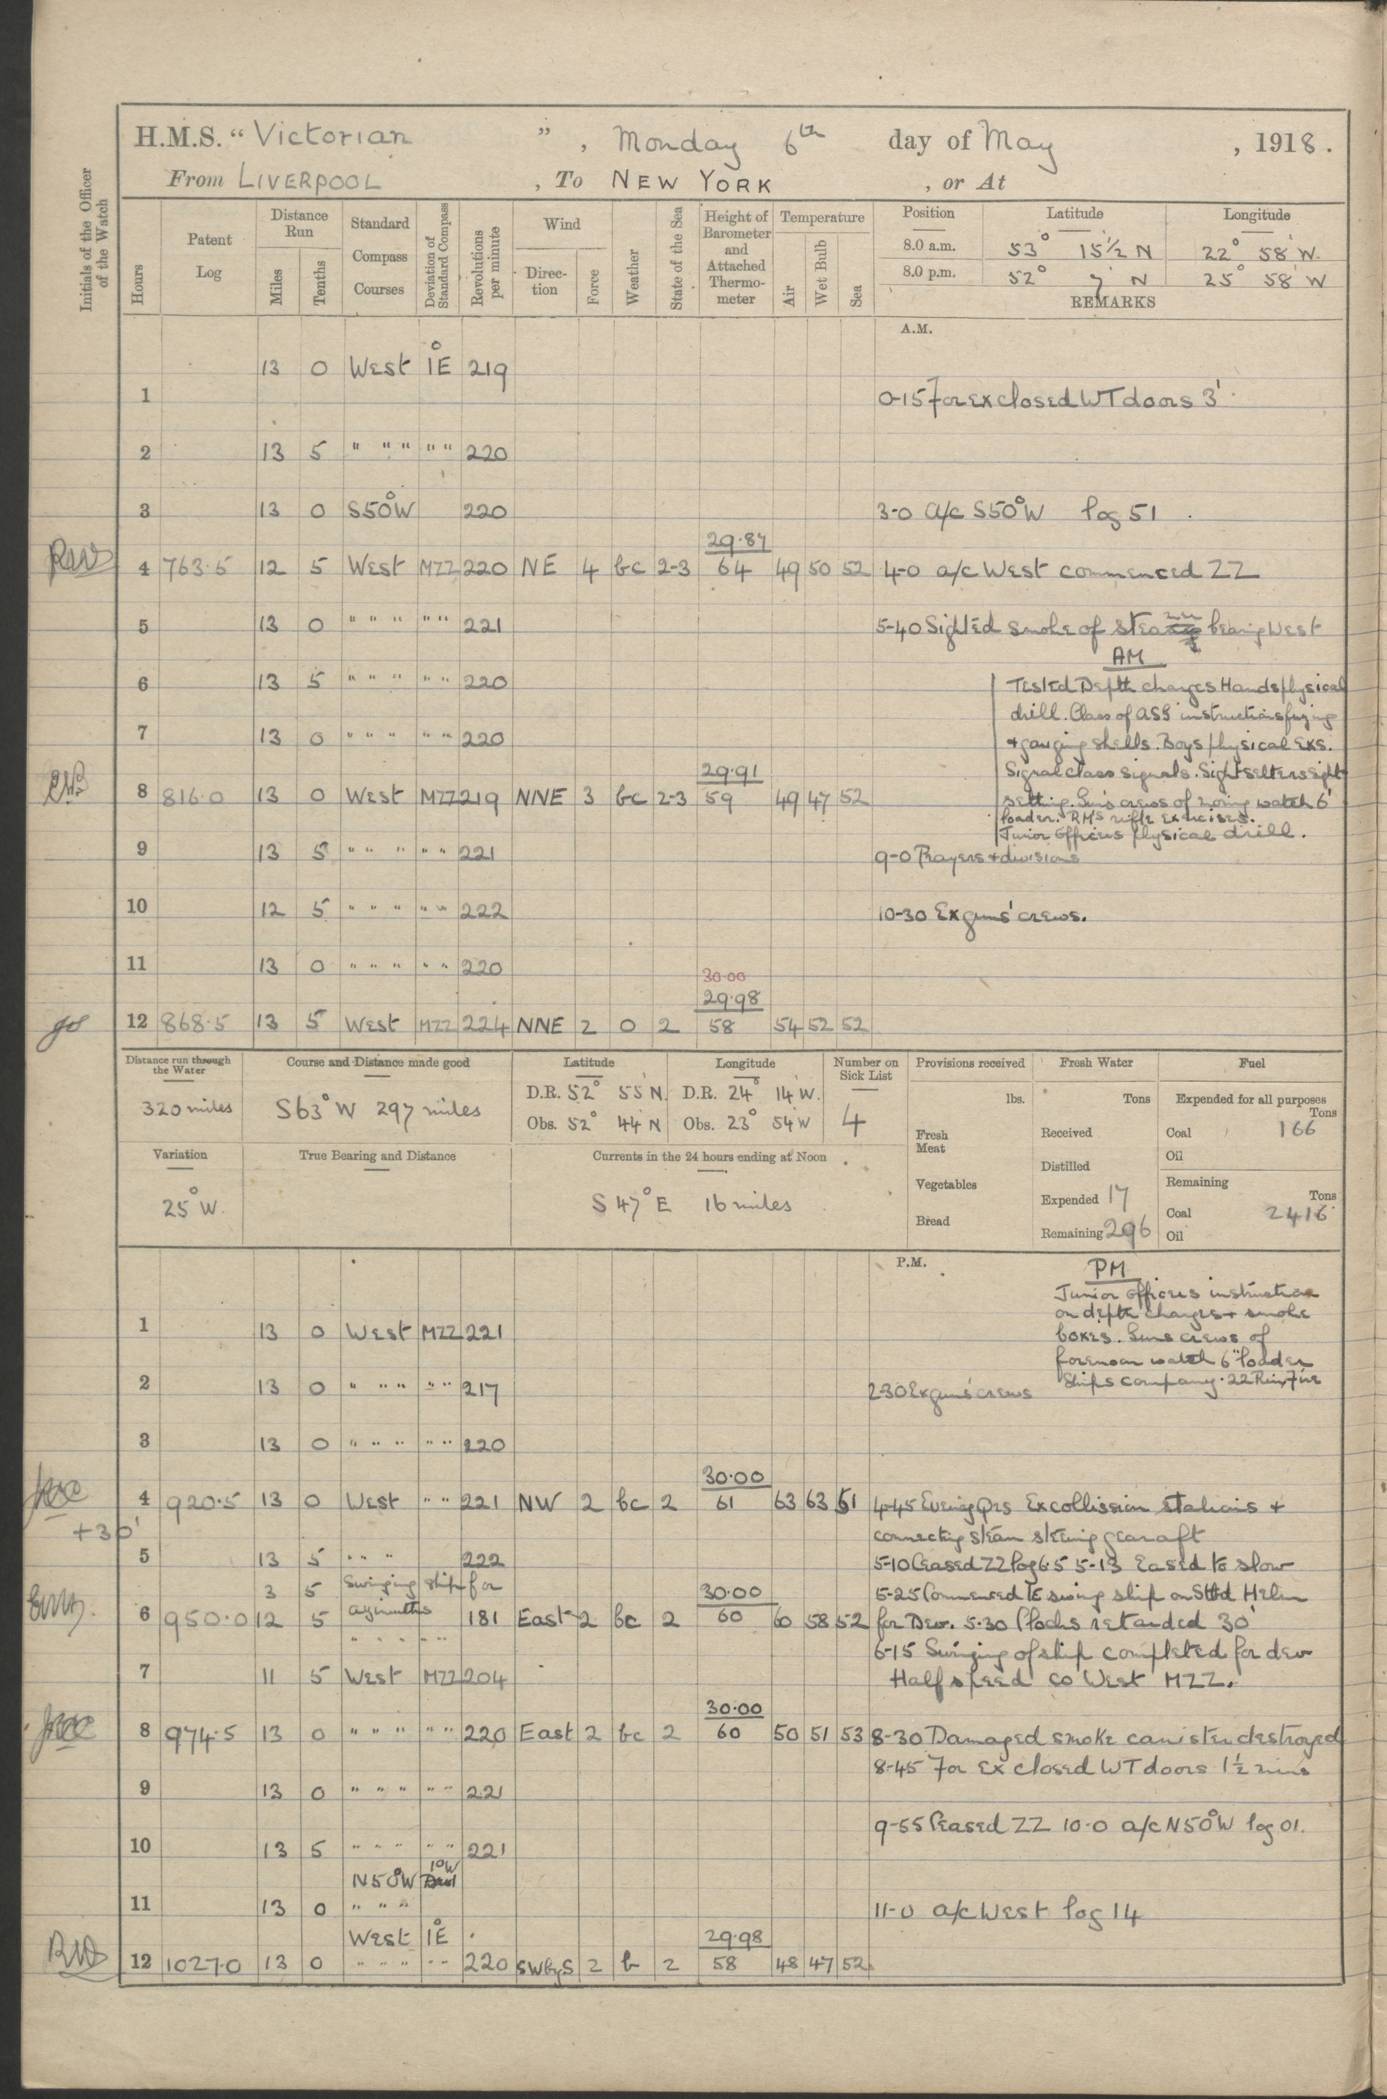 H.M.S. “ Victorian ” , Monday 6th day of May , 1918 .
From LIVERPOOL , To NEW YORK , or At
Initials of the Officer of the Watch
Hours
Patent Log
Distance Run
Miles
Tenths
Standard Compass Courses
Deviation of Standard Compass
Revolutions per minute
Wind
Direc-tion
Force
Weather
State of the Sea
Height of Barometer and Attached Thermo-meter
Temperature
Air
Wet Bulb
Sea
Position Latitude Longitude
8.0 a.m. 53° 15½ N 22° 58' W.
8.0 p.m. 52° 7' N 25° 58' W
REMARKS
A.M.
13 0 West 1°E 219
1 0-15 For ex closed WT doors 3'
2 13 5 " " " " " 220
3 13 0 S50°W 220 3-0 a/c S50°W log 51
29.87
4 763.5 12 5 West MZZ 220 NE 4 bc 2-3 64 49 50 52 4-0 a/c West commenced ZZ
5 13 0 " " " " " 221 5-40 Sighted smoke of bearing West
AM
6 13 5 " " " " " 220 Tested Depth charges Hands physical
drill. Class of instruction fuzing
7 13 0 " " " " " 220 + gauging shells. Boys physical Exs.
29.91 Signal class signals. Sightsetters sight
8 816.0 13 0 West MZZ 219 NNE 3 bc 2-3 59 49 47 52 setting. Guns crews of morng watch 6"
loader. RMs rifle exercises.
Junior Officers physical drill.
9 13 5 " " " " " 221 9-0 Prayers + divisions
10 12 5 " " " " " 222 10-30 Ex guns' crews.
11 13 0 " " " " " 220
30.00
29.98
12 868.5 13 5 West MZZ 224 NNE 2 0 2 58 54 52 52
Distance run through the Water
320 miles
Course and Distance made good
S63°W 297 miles
Latitude
D.R. 52° 55' N.
Obs. 52° 44' N
Longitude
D.R. 24° 14' W.
Obs. 23° 54' W
Number on Sick List
4
Provisions received
lbs.
Fresh Meat
Vegetables
Bread
Fresh Water
Tons
Received
Distilled
Expended 17
Remaining 296
Fuel
Expended for all purposes
Tons
Coal 166
Oil
Remaining
Tons
Coal 2416
Oil
Variation
25° W.
True Bearing and Distance
Currents in the 24 hours ending at Noon
S 47° E 16 miles
P.M.
PM
Junior Officers instruction
on depth charges + smoke
1 13 0 West MZZ 221 boxes. Guns crews of
forenoon watch 6" loader
2 13 0 " " " " " 217 Ships company .22 Rim Fire
2-30 Ex guns' crews
3 13 0 " " " " " 220
30.00
4 920.5 13 0 West " " 221 NW 2 bc 2 61 63 63 51 4-45 Evening Qrs Ex collission stations +
+30' connecting steam steering gear aft
5 13 5 " " " 222 5-10 Ceased ZZ log 6.5 5-13 Eased to slow
3 5 Swinging ship for 30.00 5-25 Commenced to swing ship on Stbd Helm
6 950.0 12 5 azimuths 181 East 2 bc 2 60 60 58 52 for Dev. 5.30 Clocks retarded 30'
" " " " " 6-15 Swinging of ship completed for dev
7 11 5 West MZZ 204 Half speed Co West MZZ.
30.00
8 974.5 13 0 " " " " " 220 East 2 bc 2 60 50 51 53 8-30 Damaged smoke canister destroyed
8-45 For Ex closed WT doors 1½ mins
9 13 0 " " " " " 221
9-55 Ceased ZZ 10-0 a/c N50°W log 01.
10 13 5 " " " " " 221
N50°W 1°W
11 13 0 " " " 11-0 a/c West log 14
West 1°E 29.98
12 1027.0 13 0 " " " " " 220 SWbyS 2 b 2 58 48 47 52